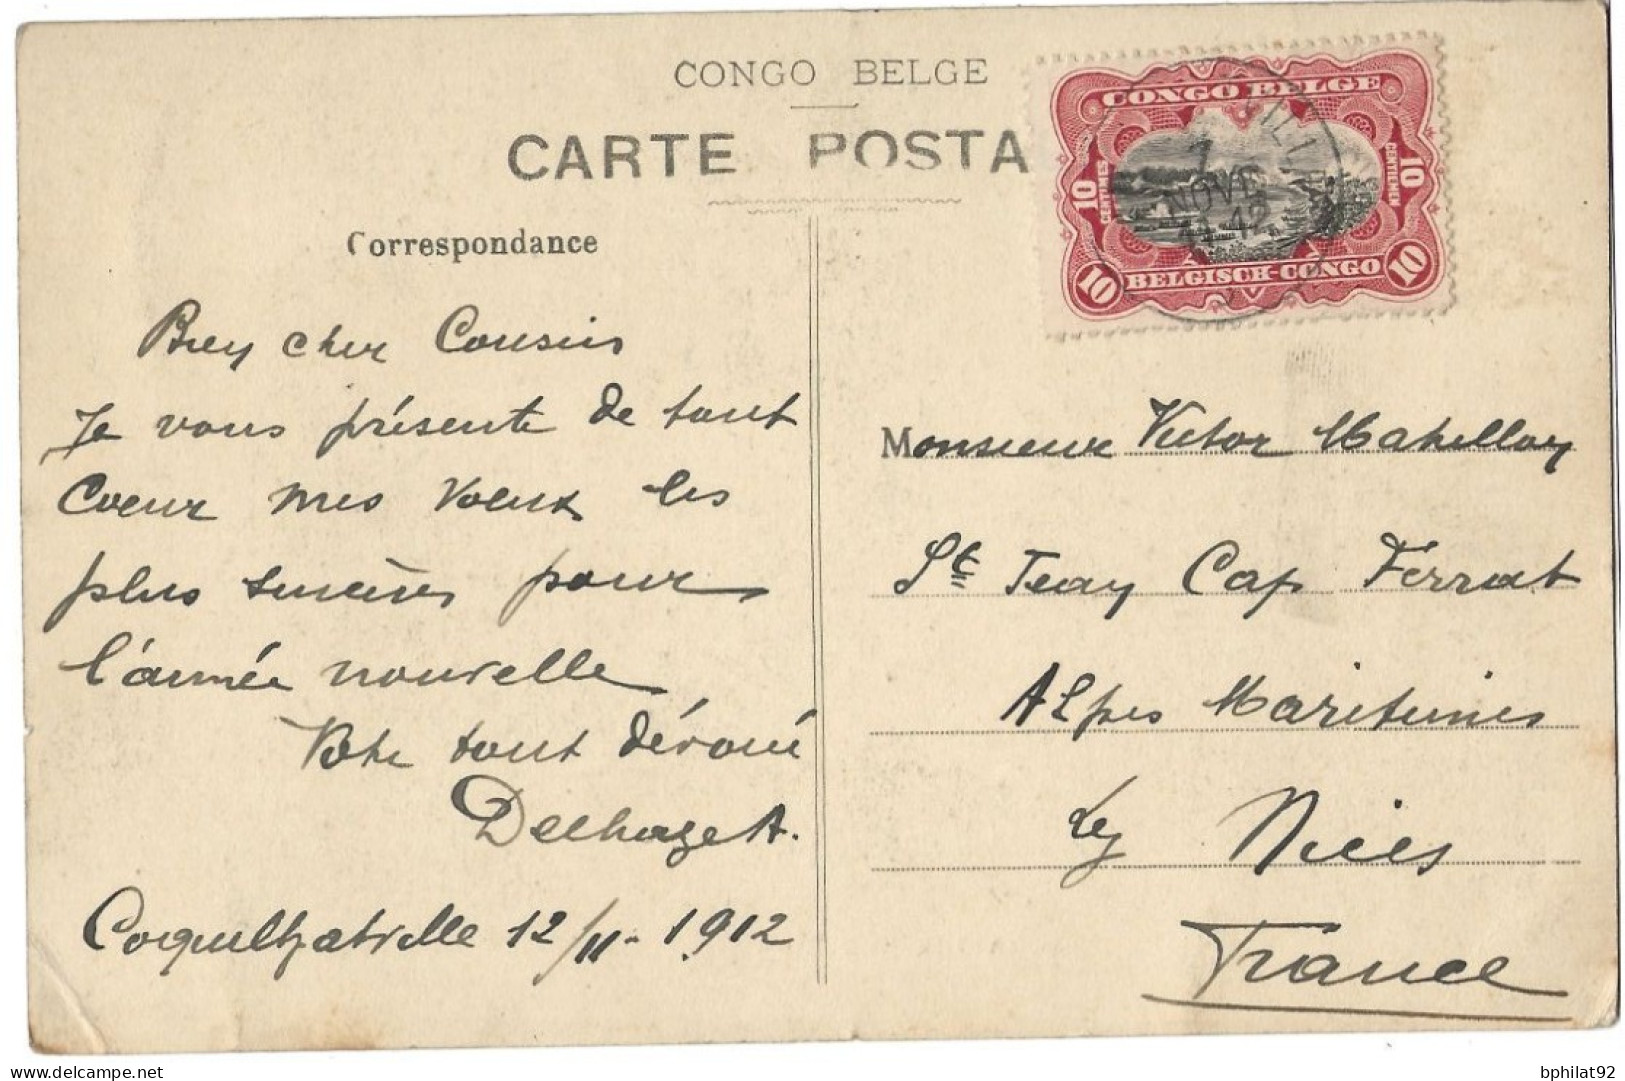 CONGO BELGE
CARTE POSTA
CONGO BELGE
10 CENTIMES
10 CENTIEMEN
NOVE
10 BELGISCH-CONGO 10
Correspondance
Bien cher Cousin
Je vous présente de tout
Coeur mes Voeux les
plus sincères pour
l'année nouvelle
Votre tout dévoué
Delhaze A.
Coquilhatville 12/11-1912
Monsieur Victor
St Jean Cap Ferrat
Alpes Maritimes
Nices
France
bphilat92